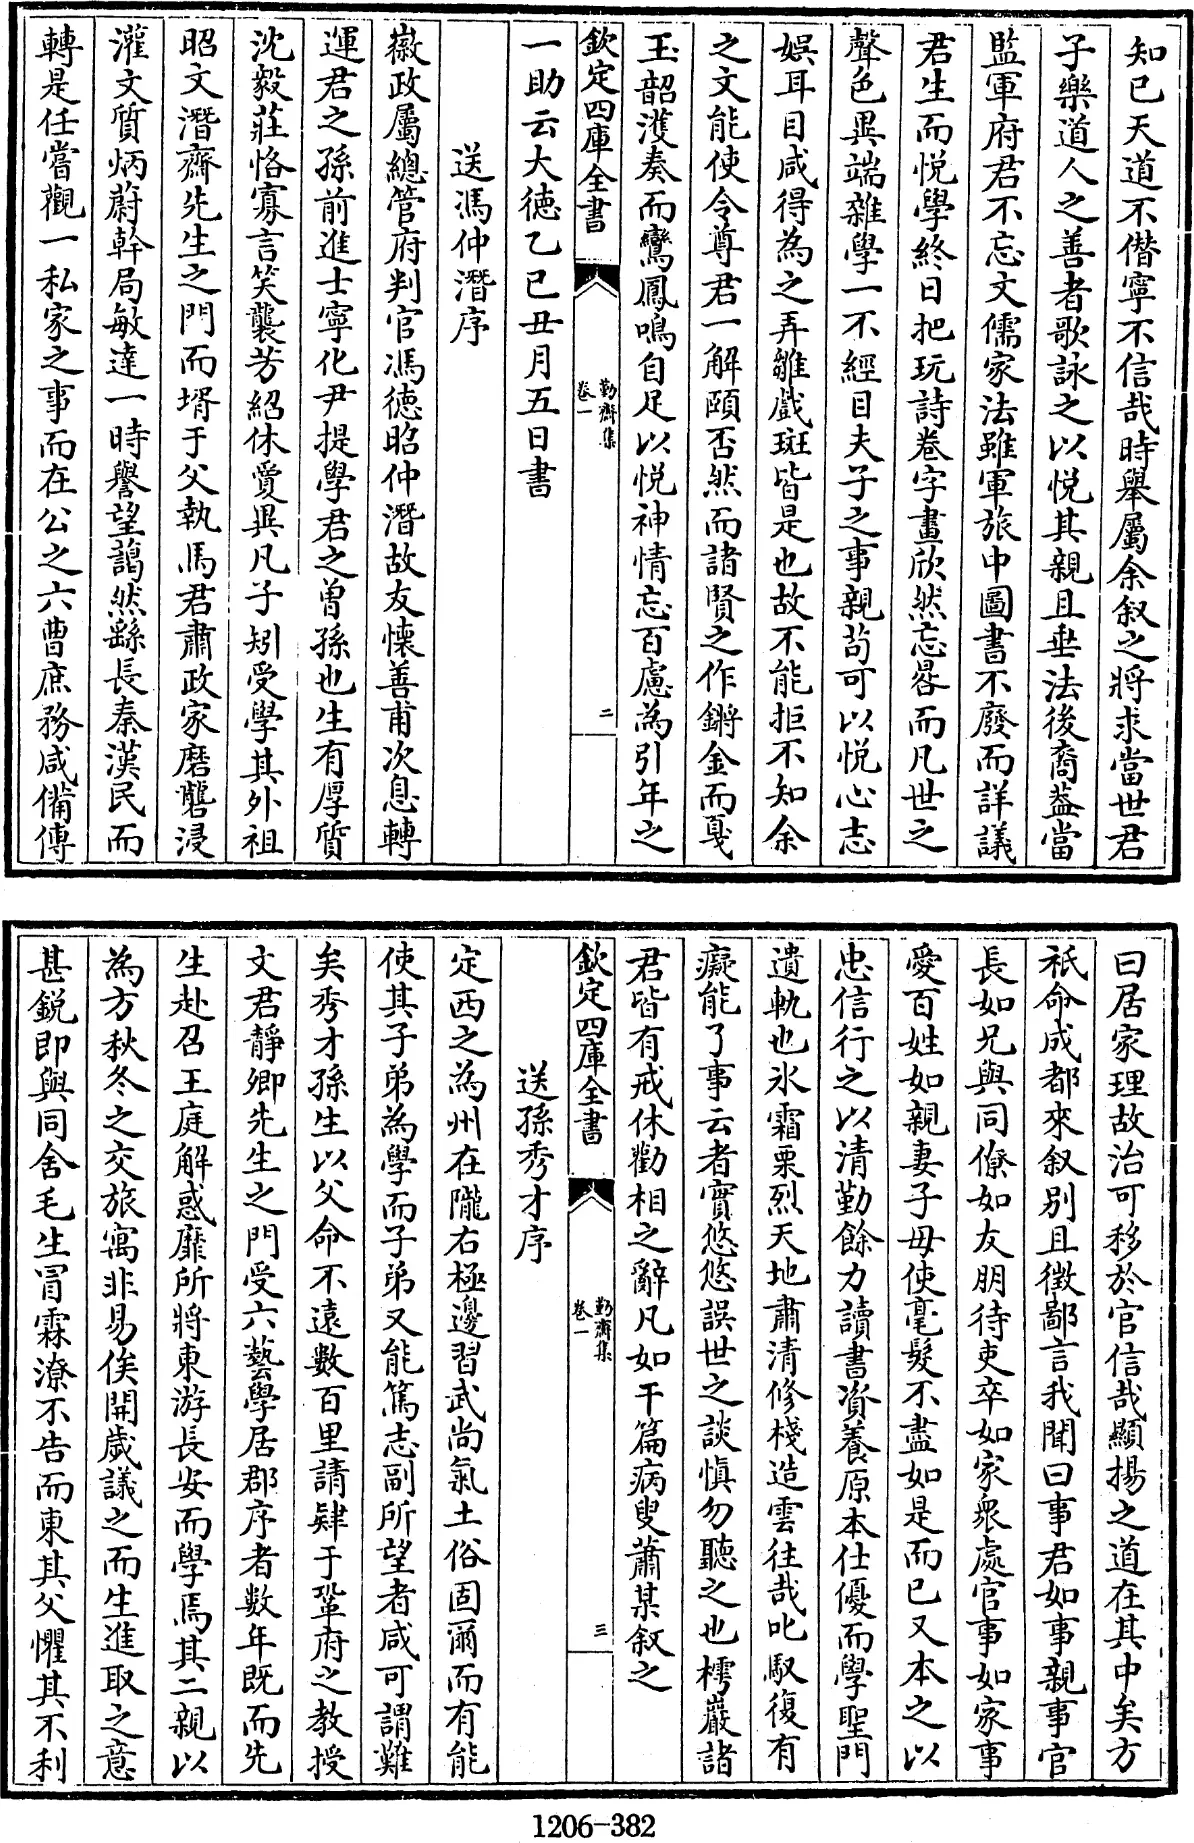 知已天道不僣寧不信哉時舉屬余叙之將求當世君
子樂道人之善者歌詠之以悅其親且垂法後裔葢當
監軍府君不忘文儒家法雖軍旅中圖書不廢而詳議
君生而悅學終日把玩詩卷字畫欣然忘晷而凡世之
聲色異端雜學一不經目夫子之事親苟可以悅心志
娯耳目咸得為之弄雛戲斑皆是也故不能拒不知余
之文能使令尊君一解頤否然而諸賢之作鏘金而戛
玉韶濩奏而鸞鳳鳴自足以悅神情忘百慮為引年之
欽定四庫全書
勤齋集
卷一
二
一助云大徳乙巳丑月五日書
送馮仲潛序
徽政屬總管府判官馮徳昭仲潛故友懷善甫次息轉
運君之孫前進士寧化尹提學君之曽孫也生有厚質
沈毅莊恪寡言笑襲芳紹休夐異凡子矧受學其外祖
昭文潛齋先生之門而壻于父執馬君肅政家磨礱浸
灌文質炳蔚幹局敏達一時譽望藹然繇長秦漢民而
轉是任嘗觀一私家之事而在公之六曹庶務咸備傳
曰居家理故治可移於官信哉顯揚之道在其中矣方
祇命成都來叙别且徵鄙言我聞曰事君如事親事官
長如兄與同僚如友朋待吏卒如家衆處官事如家事
愛百姓如親妻子毋使毫髮不盡如是而已又本之以
忠信行之以清勤餘力讀書資養原本仕優而學聖門
遺軌也氷霜栗烈天地肅清修棧造雲往哉叱馭復有
癡能了事云者實悠悠誤世之談慎勿聽之也樗巖諸
君皆有戒休勸相之辭凡如干篇病叟蕭某叙之
欽定四庫全書
勤齋集
卷一
三
送孫秀才序
定西之為州在隴右極邊習武尚氣土俗固爾而有能
使其子弟為學而子弟又能篤志副所望者咸可謂難
矣秀才孫生以父命不逺數百里請肄于鞏府之教授
文君靜卿先生之門受六藝學居郡序者數年既而先
生赴召王庭解惑靡所將東游長安而學焉其二親以
為方秋冬之交旅寓非易俟開歳議之而生進取之意
甚鋭即與同舍毛生冒霖潦不告而東其父懼其不利
1206-382